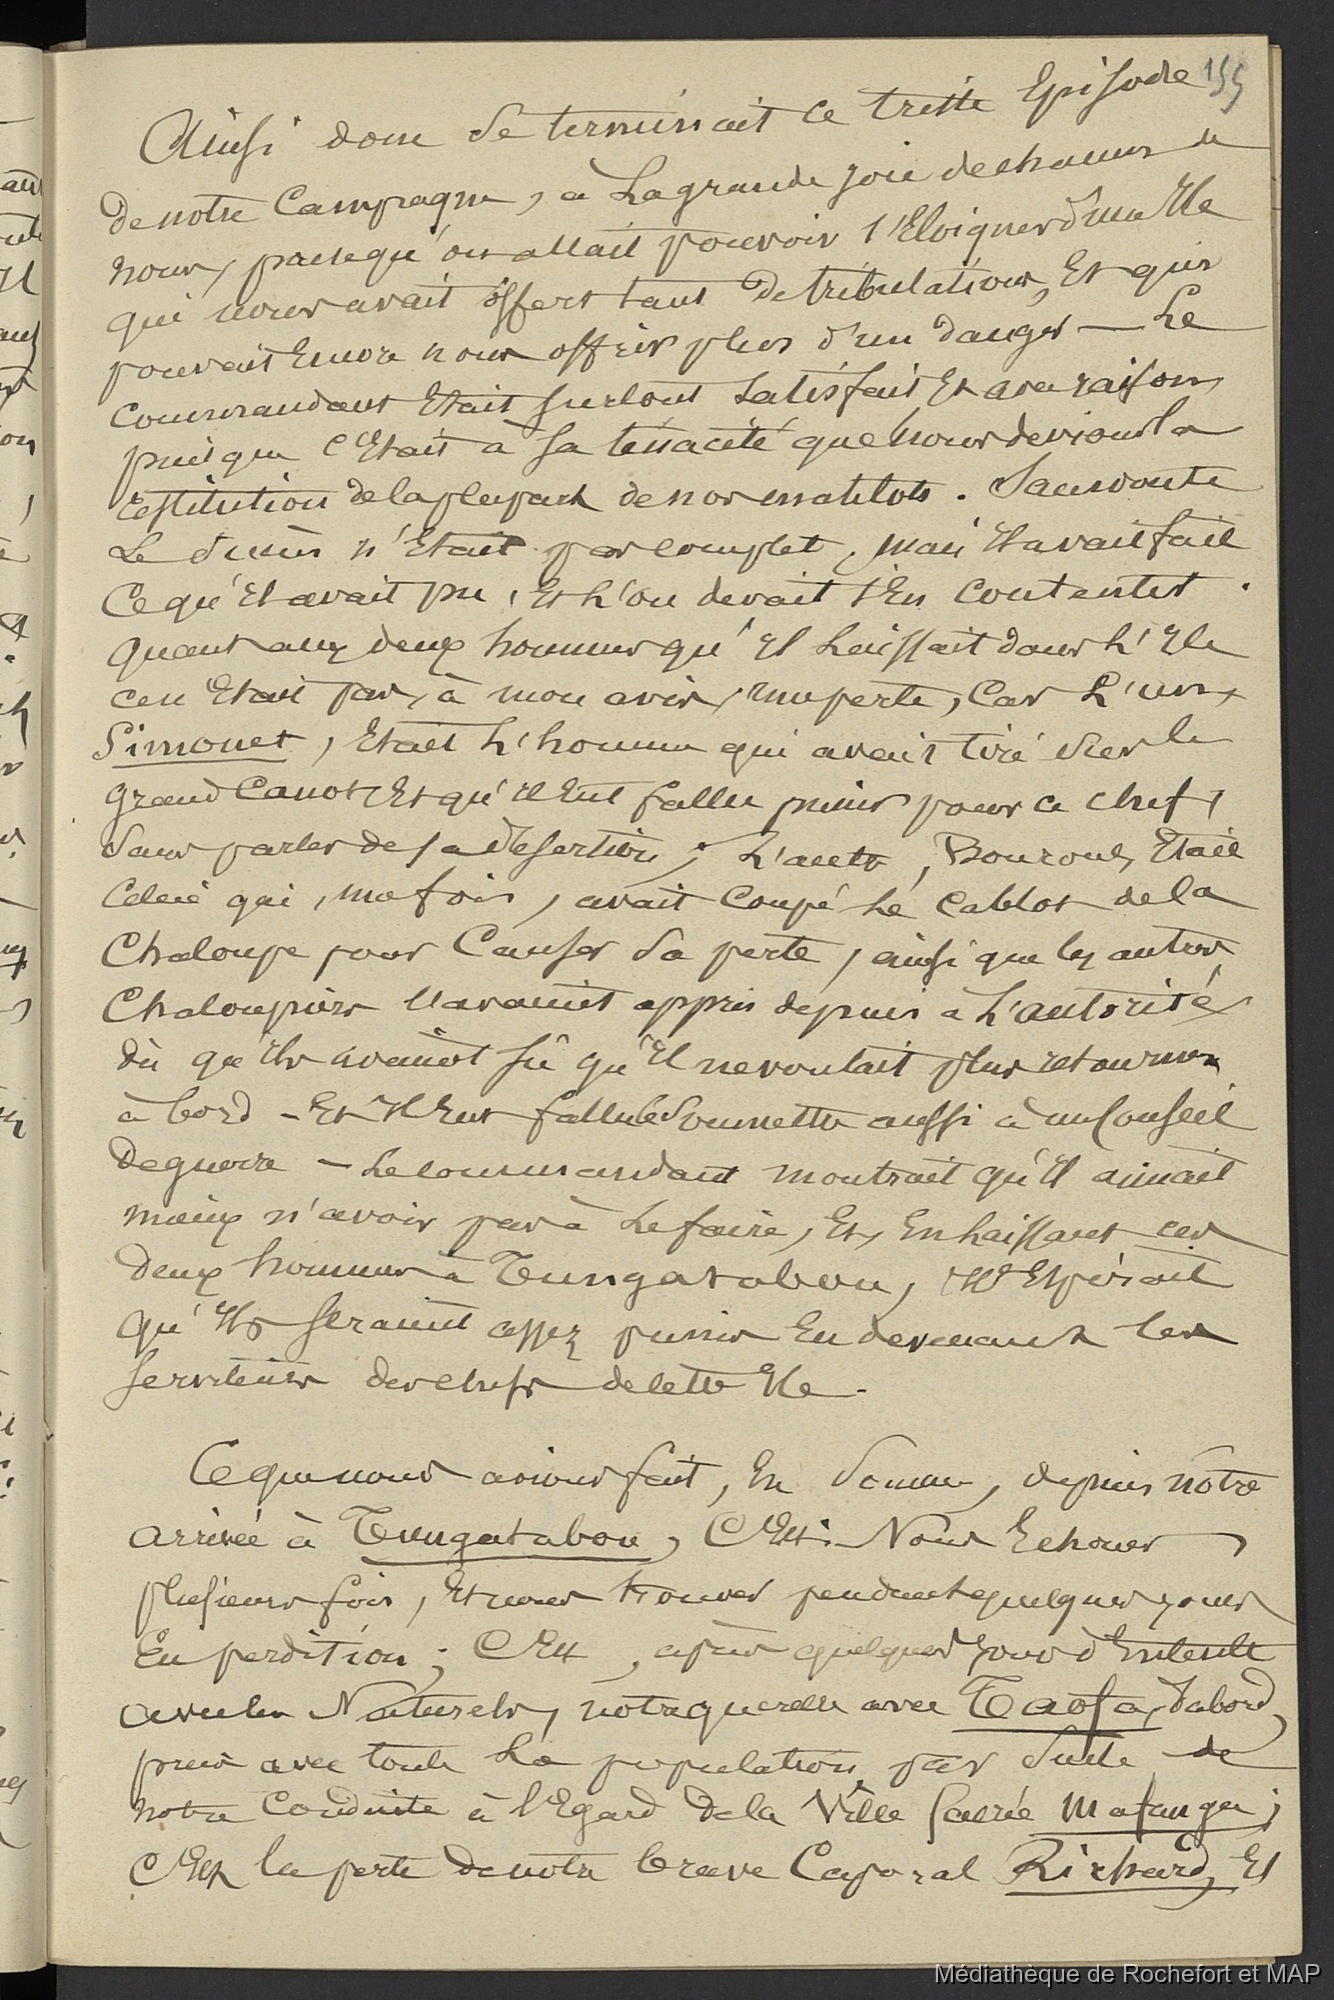 155
Ainsi donc se terminait ce triste Episode
de notre Campagne, à La grande joie de chacun de
nous, parcequ'on allait pouvoir s'Eloigner d'une Ile
qui nous avait offert tant de tribulations, Et qui
pouvait Encore nous offrir plus d'un danger — Le
commandant Etait surtout satisfait Et avec raison,
puisque c'Etait à sa ténacité que nous devions la
restitution de la plupart de nos matelots. Sans doute
Le succès n'Etait pas complet, mais Il avait fait
Ce qu'Il avait pu, Et L'on devait s'En contenter.
Quant aux deux hommes qu'Il Laissait dans L'Ile
ce n'Etait pas, à mon avis, une perte, Car L'un,
Simonet, Etait L'homme qui avait tiré sur le
grand Canot Et qu'Il Eut fallu punir pour ce chef,
sans parler de sa désertion; L'autre, Bouroul, Etait
Celui qui, ma fois, avait coupé Le cablot de la
Chaloupe pour Causer sa perte, ainsi que les autres
Chaloupiers l'avaient appris depuis à L'autorité,
dès qu'Ils avaient sû qu'Il ne voulait plus retourner
à bord - Et Il Eut fallu le soumettre aussi à un Conseil
de guerre — Le commandant montrait qu'Il aimait
mieux n'avoir pas à Le faire, Et, En Laissant ces
deux hommes à Tungatabou, Il Espérait
qu'Ils seraient assez punis En devenant les
serviteurs des chefs de cette Ile.
Ce que nous avions fait, En somme, depuis notre
arrivée à Tungatabou, C'Est: Nous Echouer
plusieurs fois, Et nous trouver pendant quelques jours
En perdition; C'Est, après quelques jours d'Entente
avec les Naturels, notre querelle avec Taofa, d'abord,
puis avec toute La population par suite de
notre conduite à l'Egard de la Ville sacrée Mafanga;
C'Est la perte de notre brave Caporal Richard, Et
Médiathèque de Rochefort et MAP